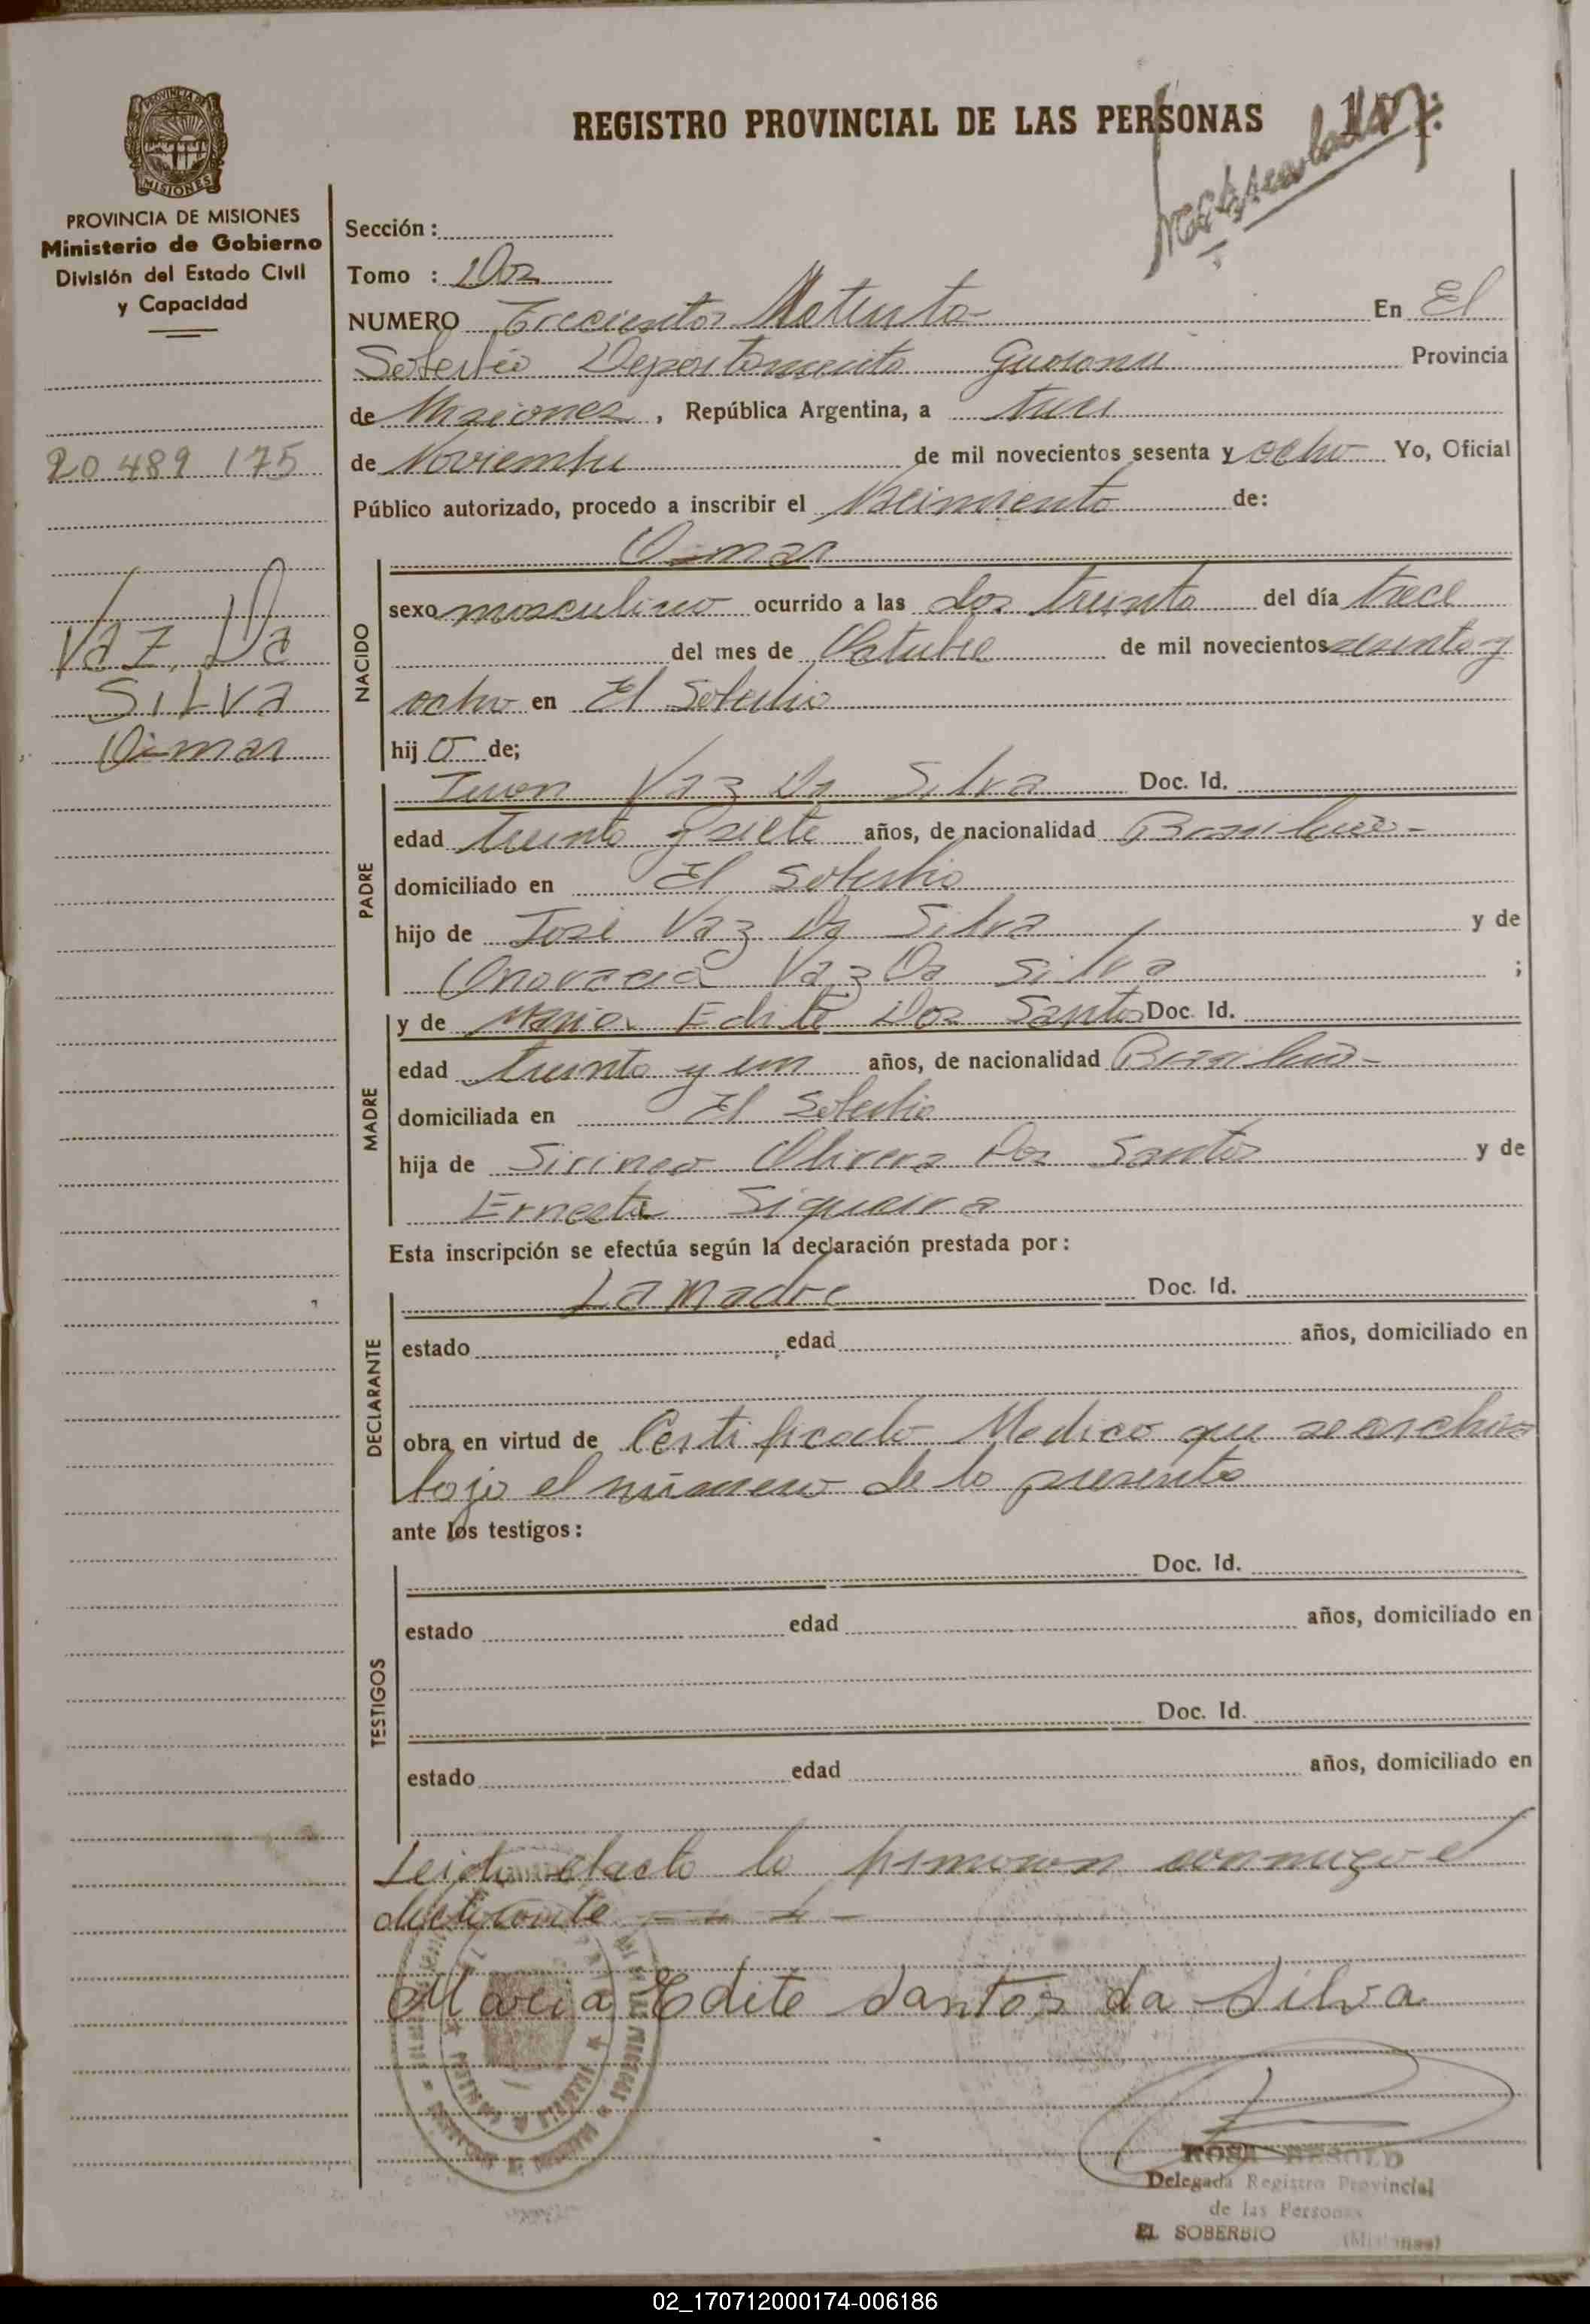 REGISTRO PROVINCIAL DE LAS PERSONAS
107.
Matriculado
PROVINCIA DE MISIONES
Ministerio de Gobierno
División del Estado Civil
y Capacidad
20 489 175
Vaz Da
Silva
Sección :
Tomo : Dos
NUMERO Trecientos En El
Soberbio Departamento Guarani Provincia
de Misiones, República Argentina, a
de Noviembre de mil novecientos sesenta y ocho Yo, Oficial
Público autorizado, procedo a inscribir el Nacimiento de:
NACIDO
sexo masculino ocurrido a las dos treinta del día trece
del mes de Octubre de mil novecientos sesenta y
ocho en El Soberbio
hijo de;
PADRE
Juan Vaz Da Silva Doc. Id.
edad treinta y siete años, de nacionalidad Brasilera -
domiciliado en El Soberbio
hijo de José Vaz Da Silva y de
Vaz Da Silva ;
MADRE
y de Maria Edite Dos Santos Doc. Id.
edad treinta y un años, de nacionalidad Brasilera -
domiciliada en El Soberbio
hija de Sirineo Olivera Dos Santos y de
Ernesta Siqueira
Esta inscripción se efectúa según la declaración prestada por:
DECLARANTE
La Madre Doc. Id.
estado edad años, domiciliado en
obra en virtud de Certificado Medico que se archiva
bajo el número de la presente
ante los testigos:
TESTIGOS
Doc. Id.
estado edad años, domiciliado en
Doc. Id.
estado edad años, domiciliado en
Leida el acta la firmaron conmigo el
declarante
Maria Edite Santos da Silva
ROSA
Delegada Registro Provincial
de las Personas
EL SOBERBIO (Misiones)
02_170712000174-006186